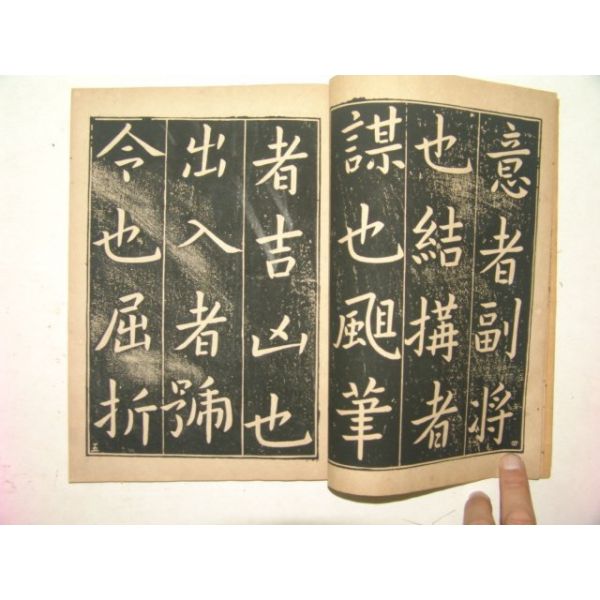 意者副将
也結構者
謀也颶筆
者吉凶也
出入者號
令也屈折
四
五